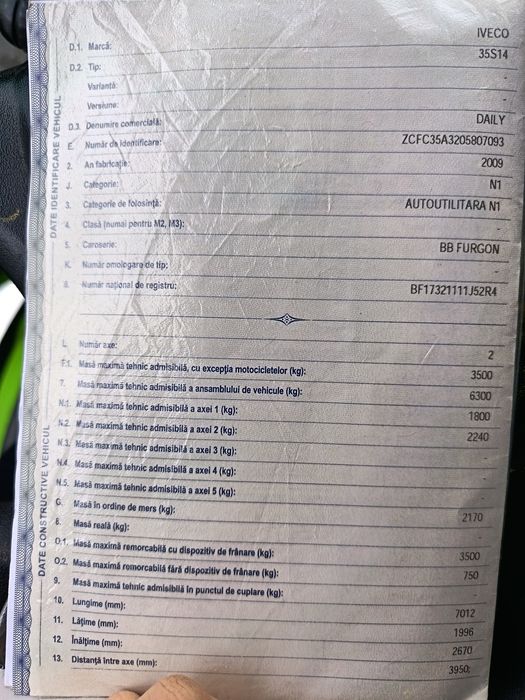 DATE IDENTIFICARE VEHICUL
D.1. Marcă: IVECO
D.2. Tip: 35S14
Variantă: -
Versiune: -
D.3. Denumire comercială: DAILY
E. Număr de identificare: ZCFC35A3205807093
2. An fabricație: 2009
J. Categorie: N1
3. Categorie de folosință: AUTOUTILITARA N1
4. Clasă (numai pentru M2, M3): -
5. Caroserie: BB FURGON
K. Număr omologare de tip: -
8. Număr național de registru: BF17321111J52R4
DATE CONSTRUCTIVE VEHICUL
L. Număr axe: 2
F.1. Masă maximă tehnic admisibilă, cu excepția motocicletelor (kg): 3500
7. Masă maximă tehnic admisibilă a ansamblului de vehicule (kg): 6300
N.1. Masă maximă tehnic admisibilă a axei 1 (kg): 1800
N.2. Masă maximă tehnic admisibilă a axei 2 (kg): 2240
N.3. Masă maximă tehnic admisibilă a axei 3 (kg): -
N.4. Masă maximă tehnic admisibilă a axei 4 (kg): -
N.5. Masă maximă tehnic admisibilă a axei 5 (kg): -
G. Masă în ordine de mers (kg): 2170
8. Masă reală (kg): -
O.1. Masă maximă remorcabilă cu dispozitiv de frânare (kg): 3500
O.2. Masă maximă remorcabilă fără dispozitiv de frânare (kg): 750
9. Masă maximă tehnic admisibilă în punctul de cuplare (kg): -
10. Lungime (mm): 7012
11. Lățime (mm): 1996
12. Înălțime (mm): 2670
13. Distanță între axe (mm): 3950;